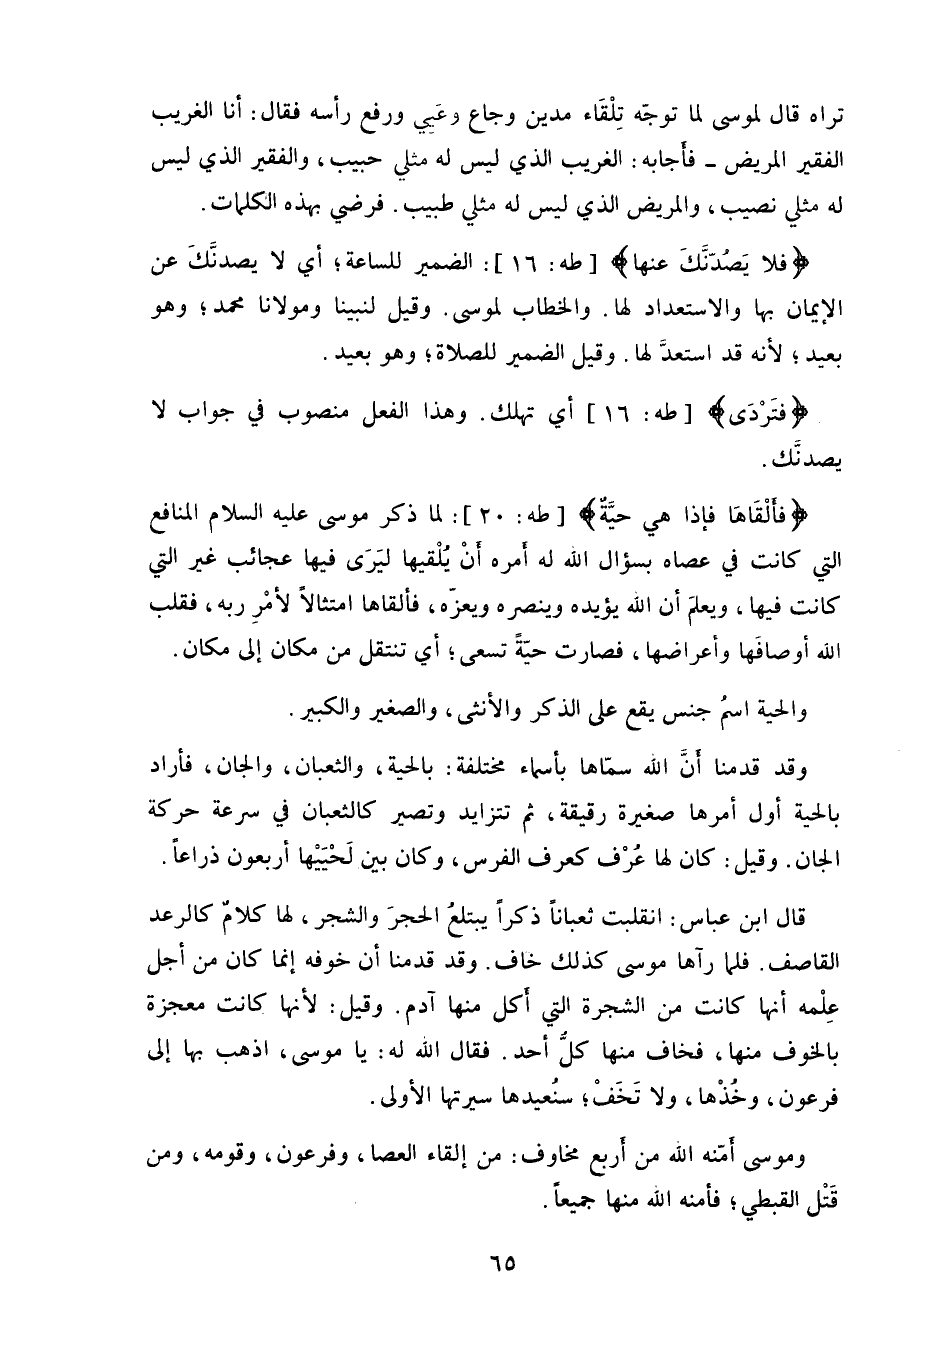 تراه قال لموسى لما توجّه تِلْقَاء مدين وجاع وعَيي ورفع رأسه فقال: أنا الغريب
الفقير المريض ـ فأَجابه: الغريب الذي ليس له مثلي حبيب، والفقير الذي ليس
له مثلي نصيب، والمريض الذي ليس له مثلي طبيب. فرضي بهذه الكلمات.
﴿فلا يَصُدّنَّكَ عنها﴾ [طه: ١٦]: الضمير للساعة؛ أي لا يصدنَّكَ عن
الإيمان بها والاستعداد لها. والخطاب لموسى. وقيل لنبينا ومولانا محمد؛ وهو
بعيد؛ لأنه قد استعدَّ لها. وقيل الضمير للصلاة؛ وهو بعيد.
﴿فتَرْدَى﴾ [طه: ١٦] أي تهلك. وهذا الفعل منصوب في جواب لا
يصدنَّك.
﴿فأَلْقَاهَا فإذا هي حيَّةٌ﴾ [طه: ٢٠]: لما ذكر موسى عليه السلام المنافع
التي كانت في عصاه بسؤال الله له أَمره أَنْ يُلْقيها ليَرَى فيها عجائب غير التي
كانت فيها، ويعلمَ أن الله يؤيده وينصره ويعزّه، فألقاها امتثالاً لأمْرِ ربه، فقلب
الله أوصافَها وأعراضها، فصارت حيّةً تسعى؛ أي تنتقل من مكان إلى مكان.
والحية اسمُ جنس يقع على الذكر والأنثى، والصغير والكبير.
وقد قدمنا أنَّ الله سمّاها بأسماء مختلفة: بالحية، والثعبان، والجان، فأراد
بالحية أول أمرها صغيرة رقيقة، ثم تتزايد وتصير كالثعبان في سرعة حركة
الجان. وقيل: كان لها عُرْف كعرف الفرس، وكان بين لَحْيَيْها أربعون ذراعاً.
قال ابن عباس: انقلبت ثعباناً ذكراً يبتلعُ الحجرَ والشجر، لها كلامٌ كالرعد
القاصف. فلما رآها موسى كذلك خاف. وقد قدمنا أن خوفه إنما كان من أجل
عِلْمه أنها كانت من الشجرة التي أكل منها آدم. وقيل: لأنها كانت معجزة
بالخوف منها، فخاف منها كلُّ أحد. فقال الله له: يا موسى، اذهب بها إلى
فرعون، وخُذْها، ولا تَخَفْ؛ سنُعيدها سيرتها الأولى.
وموسى أَمّنه الله من أَربع مخاوف: من إلقاء العصا، وفرعون، وقومه، ومن
قَتْل القبطي؛ فأمنه الله منها جميعاً.
٦٥